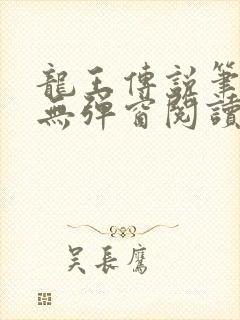 龍王傳說筆
無彈窗閱讀
吳長鷹